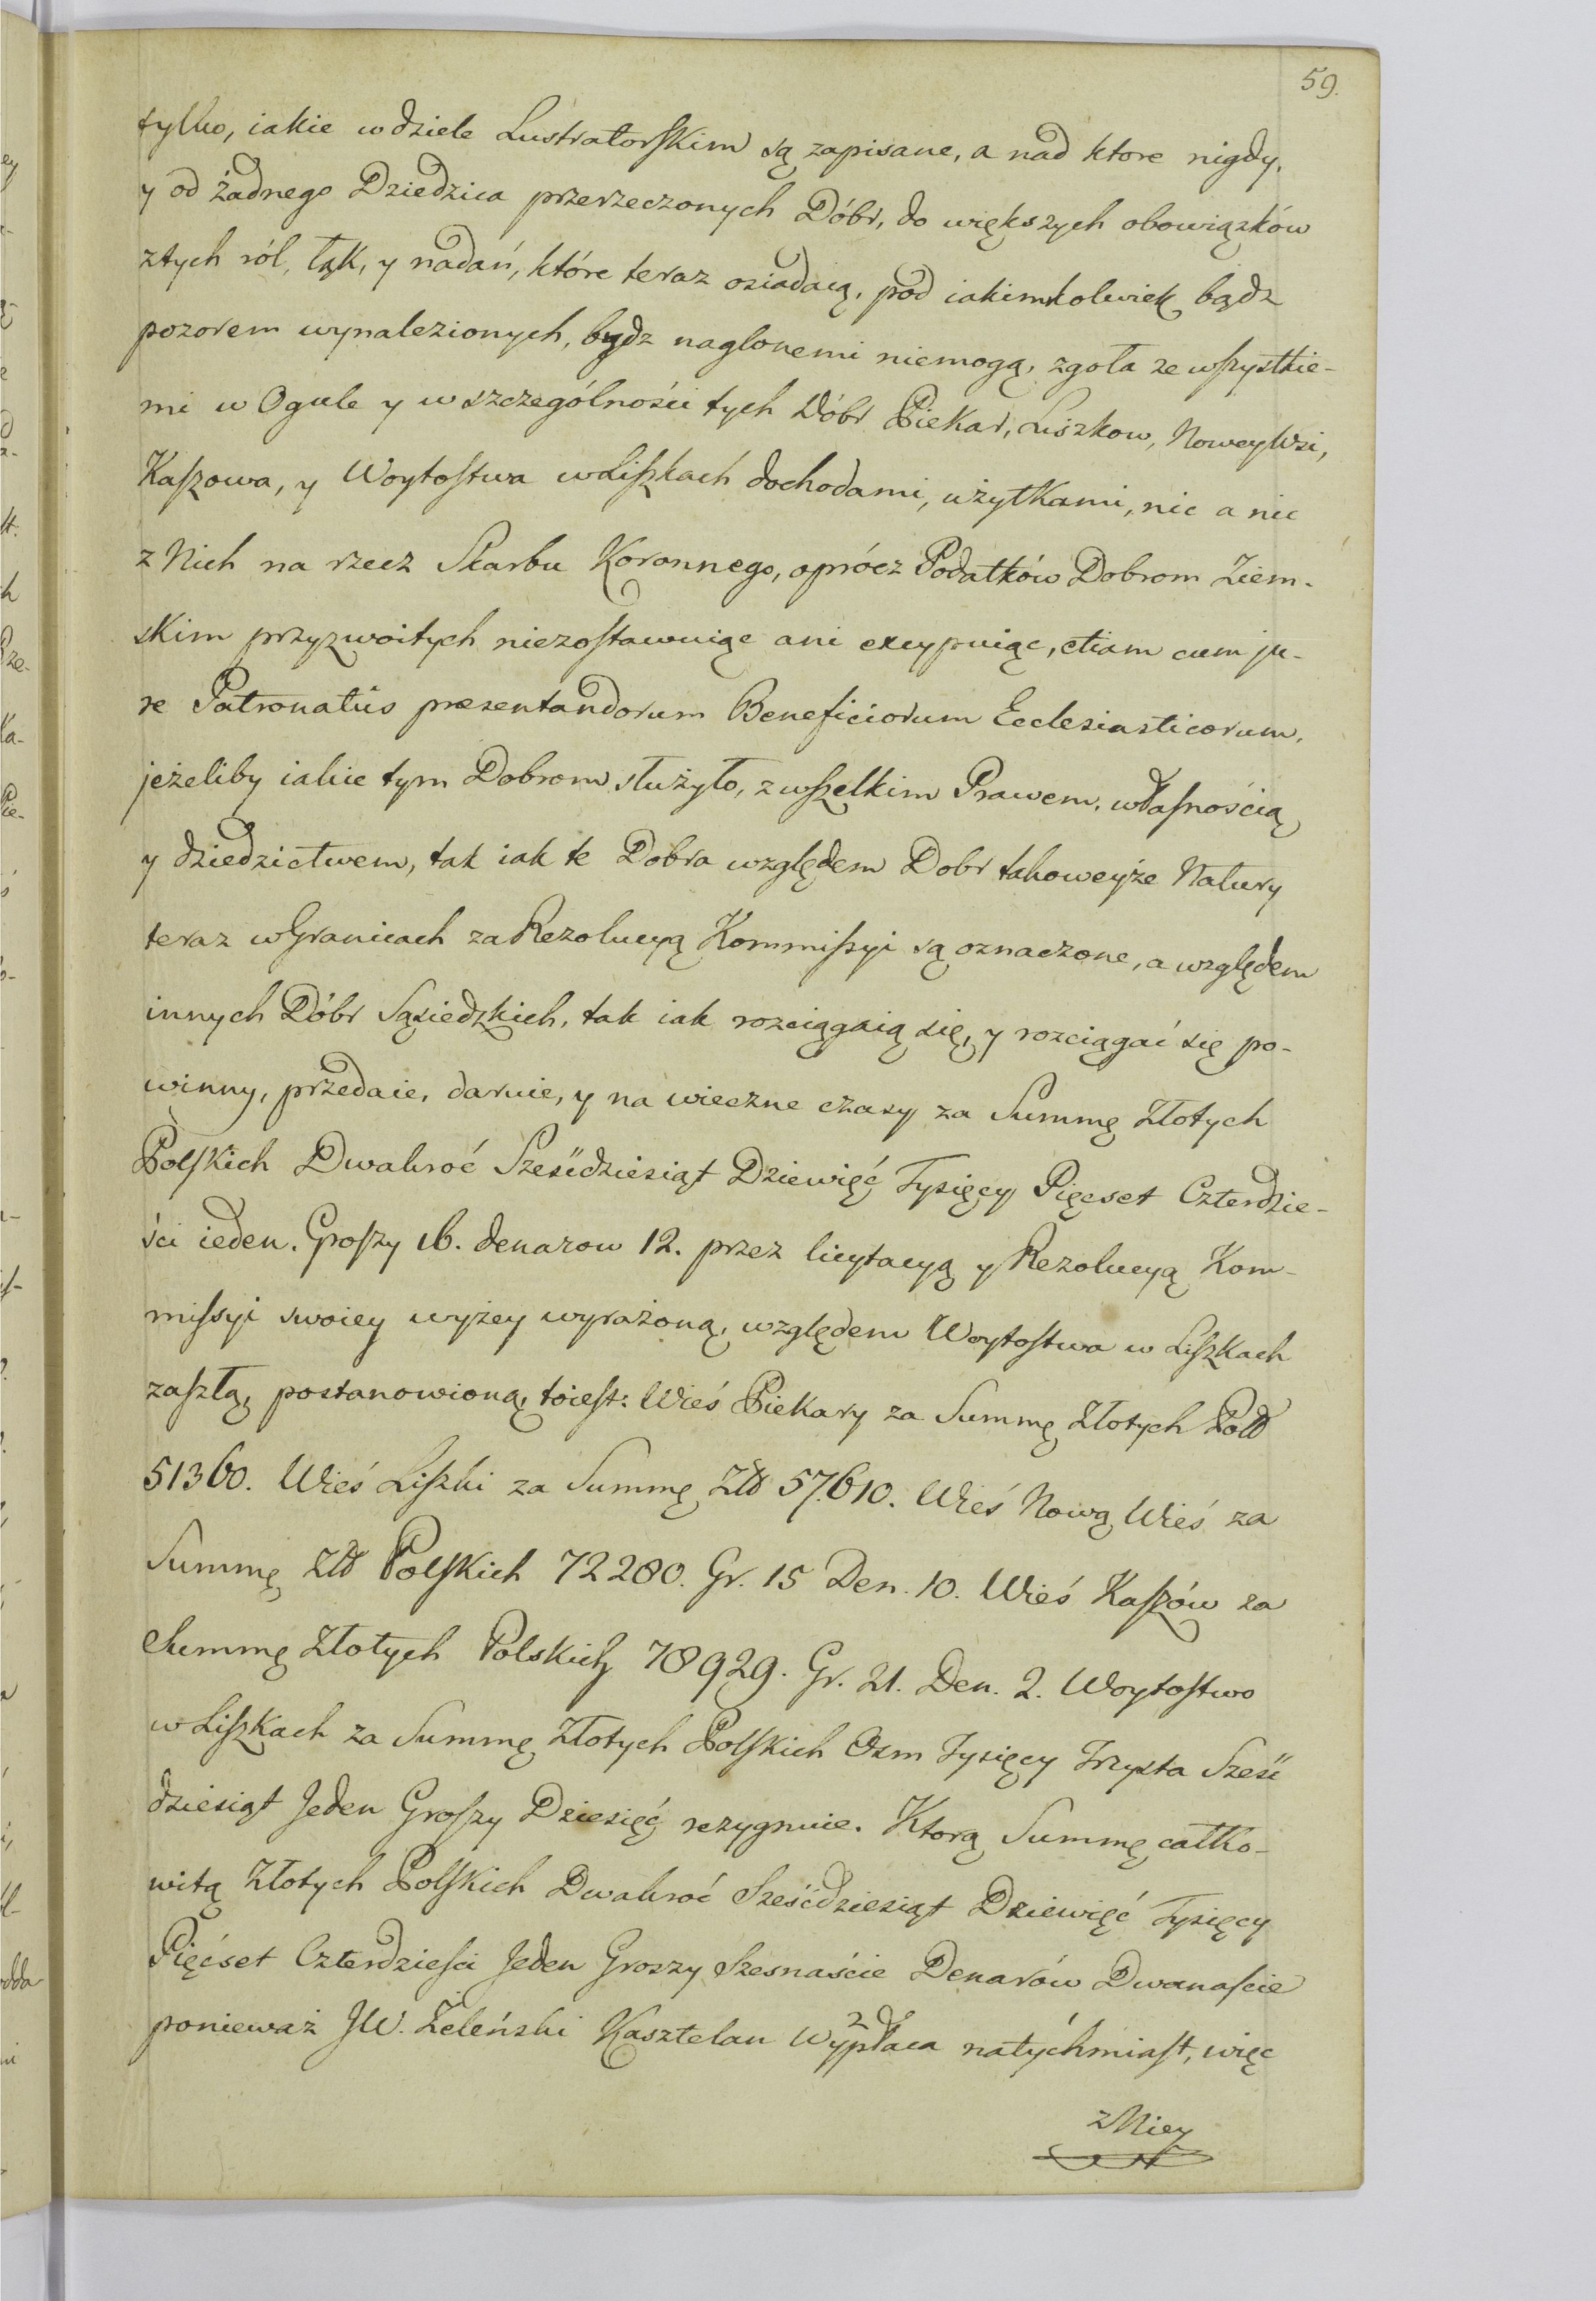 59.
tylko, iakie w dziele Lustratorſkim są zapisane, a nad ktore nigdy,
y od żadnego Dziedzica przerzeczonych Dóbr, do większych obowiązków
z tych ról, łąk, y nadań, które teraz osiadaią, pod iakimkolwiek bądz
pozorem wynalezionych, bydz naglonemi niemogą, zgoła ze wſzystkie-
mi w Ogule y w szczególności tych Dóbr Piekar, Liszkow, Nowey Wsi,
Kaſzowa, y Woytoſtwa w Liſzkach dochodami, użytkami, nic a nic
z Nich na rzecz Skarbu Koronnego, oprócz Podatków Dobrom Ziem-
skim przyzwoitych niezoſtawuiąc ani excypuiąc, etiam cum ju-
re Patronatûs præzentandorum Beneficiorum Ecclesiasticorum,
jeżeliby iakie tym Dobrom służyło, z wſzelkim Prawem, właſnością
y dziedzictwem, tak iak te Dobra względem Dobr takoweyże Natury
teraz w Granicach za Rezolucyą Kommiſsyi są oznaczone, a względem
innych Dóbr Sąsiedzkich, tak iak rozciągaią się, y rozciągać się po-
winny, przedaie, daruie, y na wieczne czasy za Summę Złotych
Polſkich Dwakroć Sześćdziesiąt Dziewięć Tysięcy Pięcset Czterdzie-
ści ieden. Groſzy 16. denarow 12. przez licytacyą y Rezolucyą Kom-
miſsyi swoiey wyżey wyrażoną, względem Woytoſtwa w Liſzkach
zaſzłą, postanowioną, toieſt: Wieś Piekary za Summę Złotych Pol
51360. Wieś Liſzki za Summę Zł 57610. Wieś Nową Wieś za
Summę Zł Polſkich 72280. Gr. 15 Den. 10. Wieś Kaſzów za
Summę Złotych Polskich 78929. Gr. 21. Den. 2. Woytoſtwo
w Liſzkach za Summę Złotych Polſkich Osm Tysięcy Trzysta Sześć
dziesiąt Jeden Groſzy Dziesięć rezygnuie. Ktorą Summę całko-
witą Złotych Polſkich Dwakroć Sześćdziesiąt Dziewięć Tysięcy
Pięćset Czterdzieſci Jeden Groszy Szesnaście Denarów Dwanaſcie
ponieważ JW. Żeleński Kasztelan wypłaca natychmiaſt, więc
z Niey